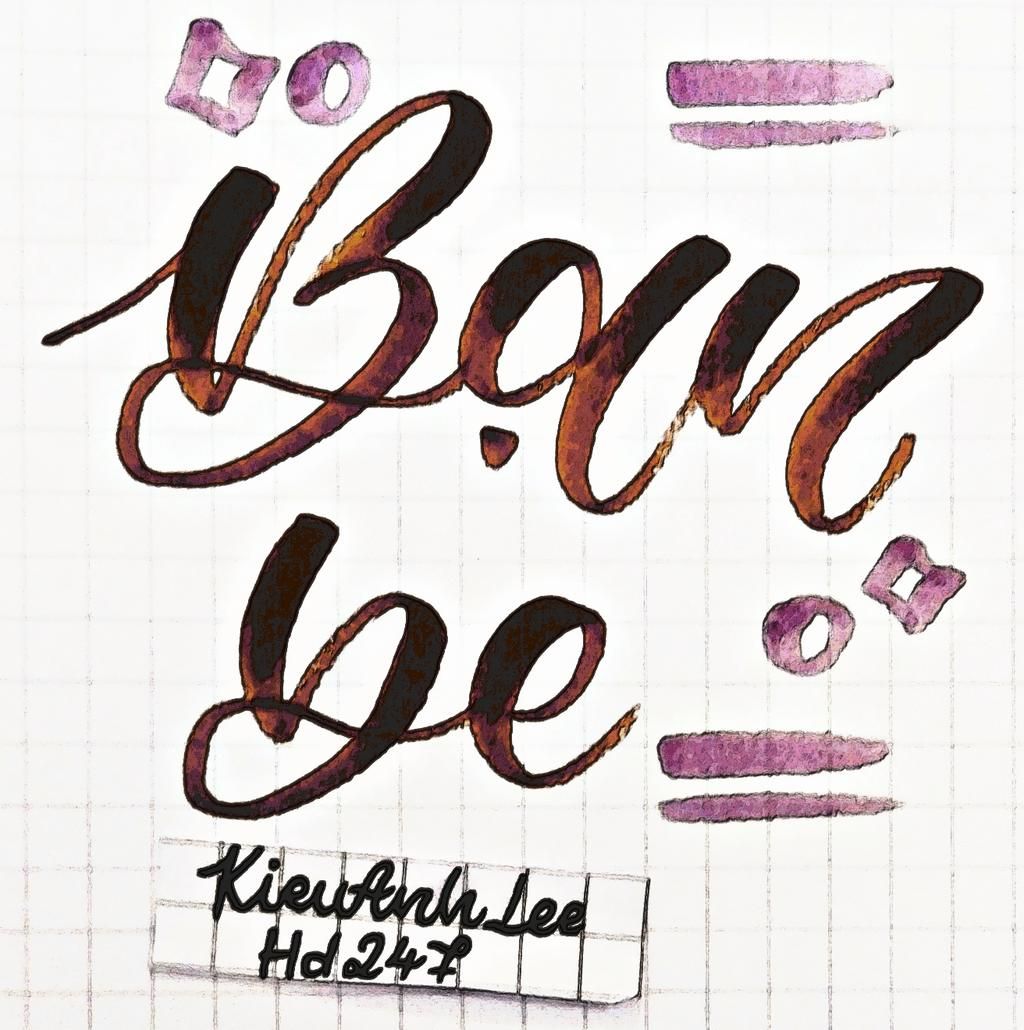 Bạn
be
KieuAnh Lee
Hd 247